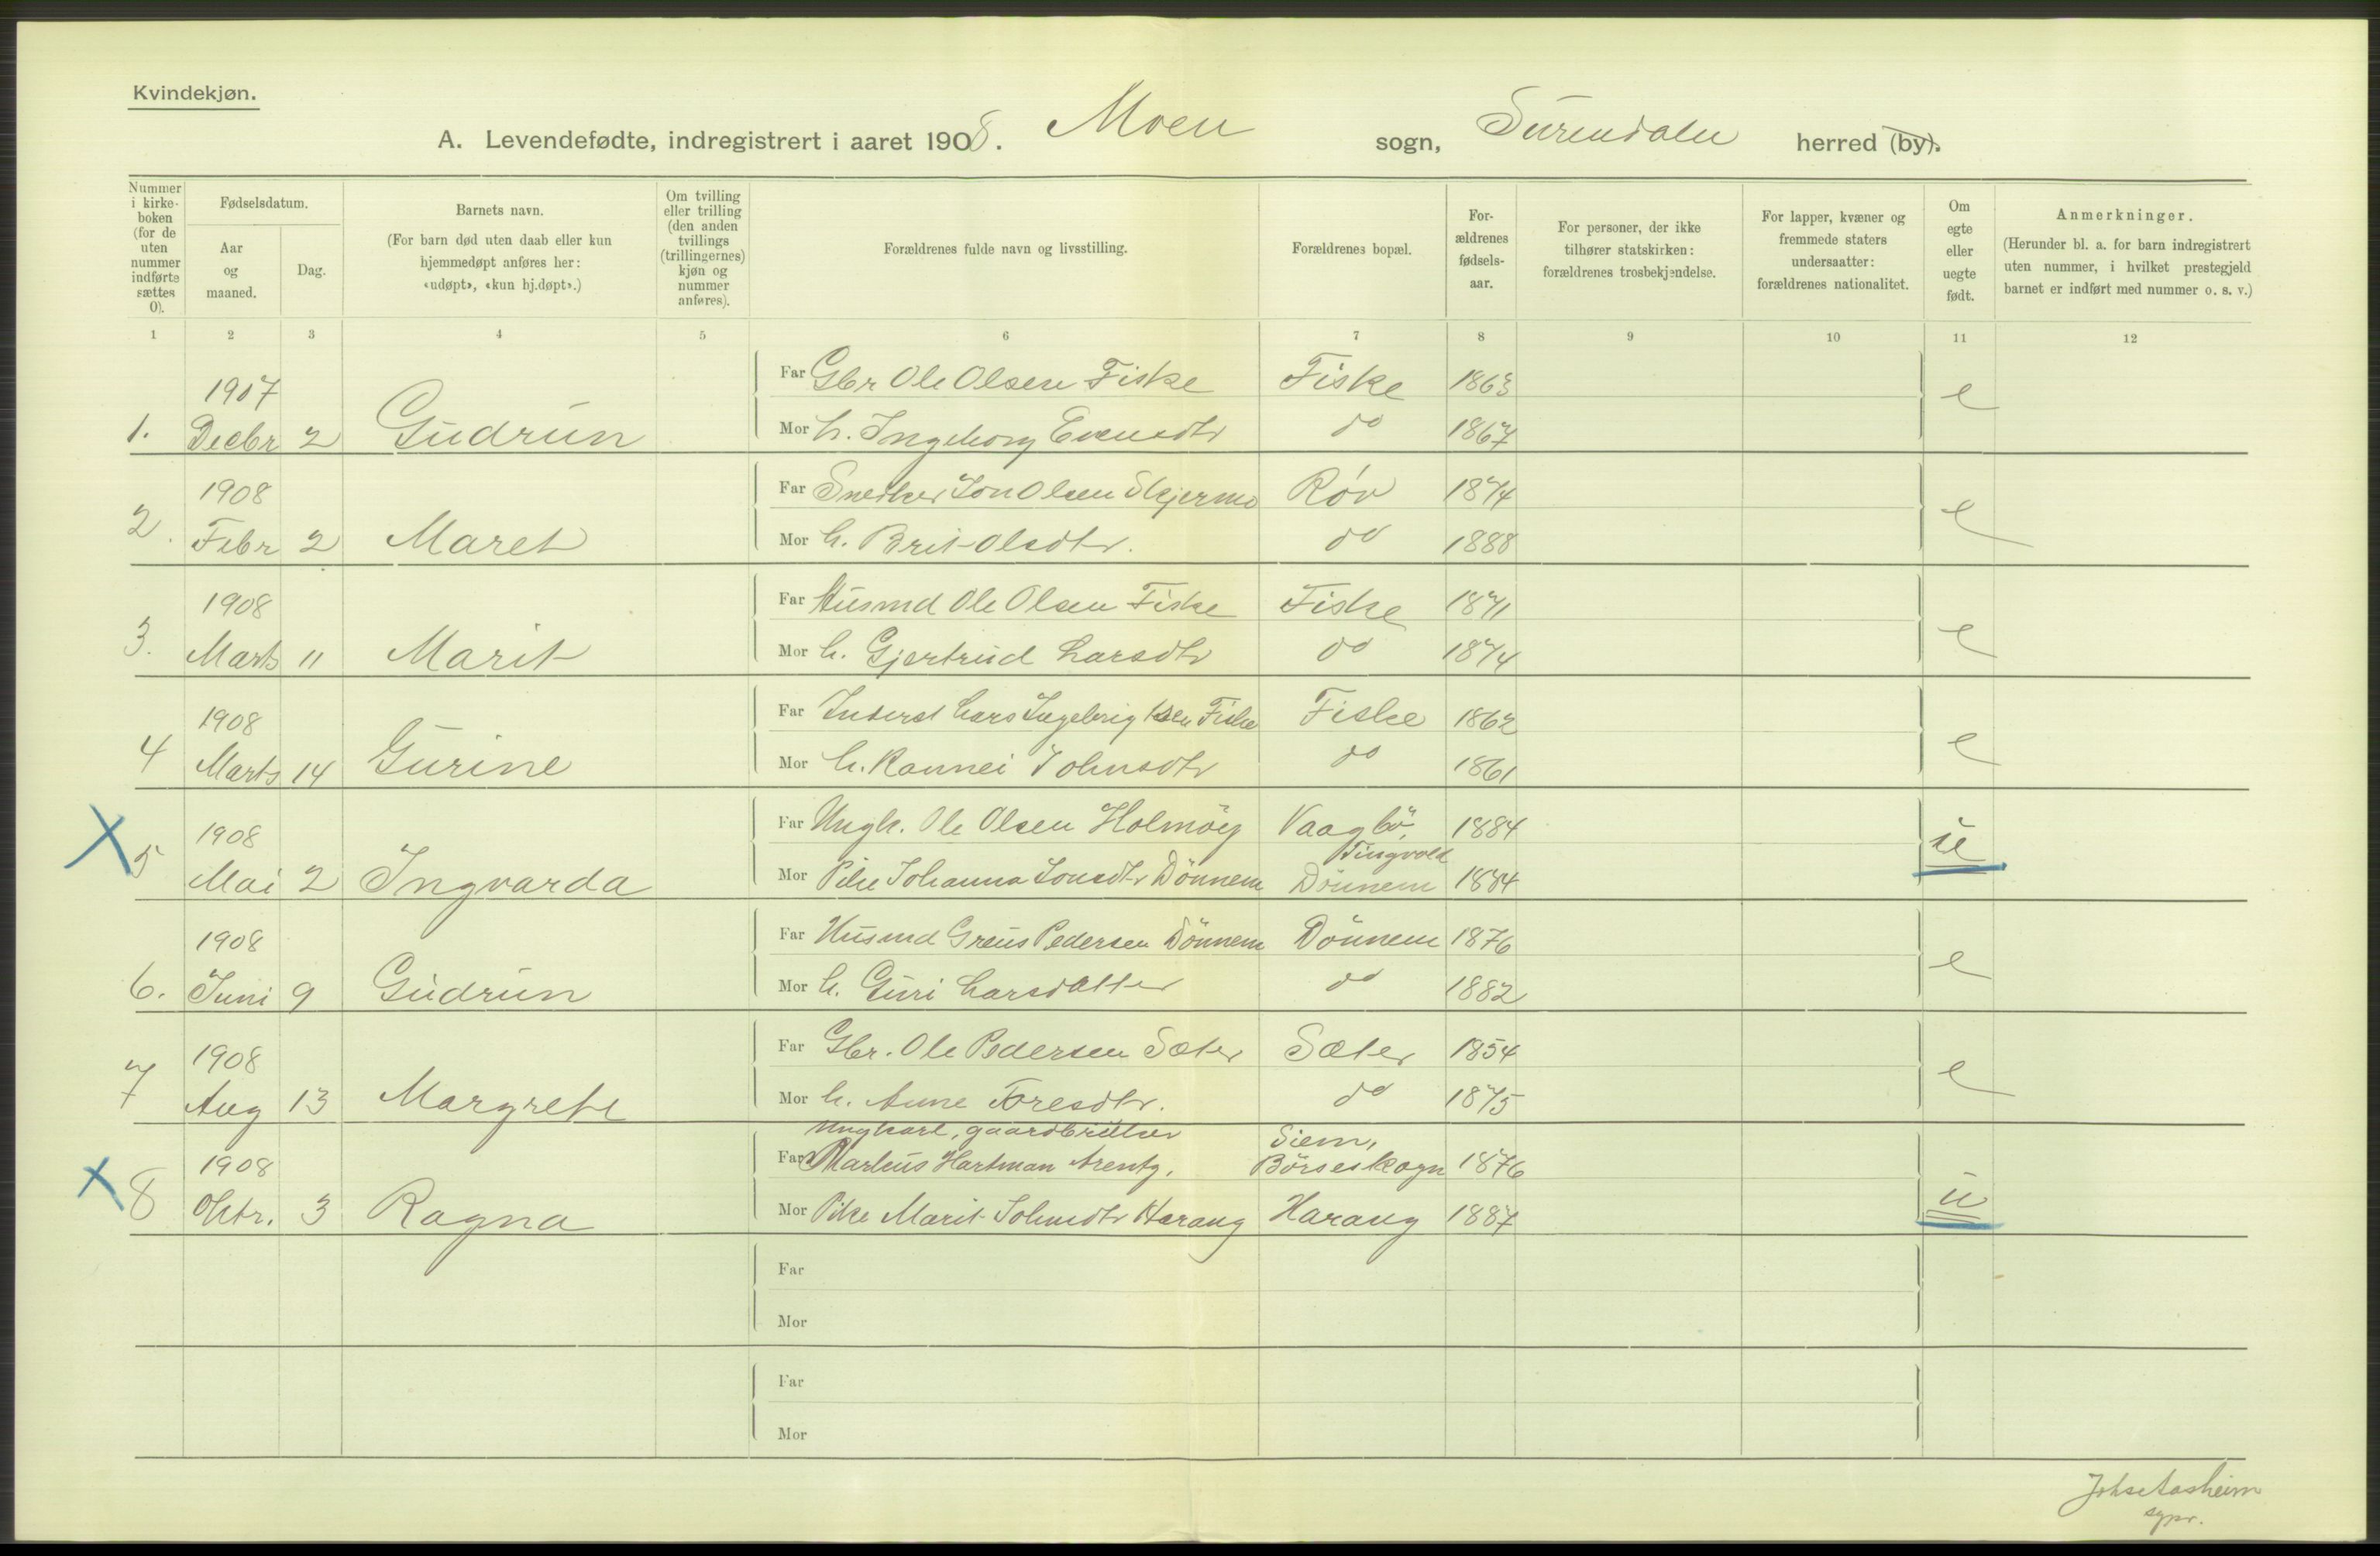 Kvindekjøn.
A. Levendefødte, indregistrert i aaret 1908. Moen sogn, Surendalen herred (by).
Nummer i kirke-boken (for de uten nummer indførte sættes 0).
Fødselsdatum.
Aar og maaned.
Dag.
Barnets navn.
(For barn død uten daab eller kun hjemmedøpt anføres her: «udøpt», «kun hj.døpt».)
Om tvilling eller trilling (den anden tvillings (trillingernes) kjøn og nummer anføres).
Forældrenes fulde navn og livsstilling.
Forældrenes bopæl.
For-ældrenes fødsels-aar.
For personer, der ikke tilhører statskirken: forældrenes trosbekjendelse.
For lapper, kvæner og fremmede staters undersaatter: forældrenes nationalitet.
Om egte eller uegte født.
Anmerkninger.
(Herunder bl. a. for barn indregistrert uten nummer, i hvilket prestegjeld barnet er indført med nummer o. s. v.)
1 2 3 4 5 6 7 8 9 10 11 12
1907
Far Gbr Ole Olsen Fiske Fiske 1863 e
1. Decbr 2 Gudrun
Mor h. Ingeborg Evensdtr do 1867
1908
Far Snedker Jon Olsen Skjermo Røv 1874 e
2. Febr 2 Maret
Mor h. Brit Olsdtr. do 1888
1908
Far Husmd Ole Olsen Fiske Fiske 1871 e
3. Marts 11 Marit
Mor h. Gjertrud Larsdtr do 1874
1908
Far Inderst Lars Ingebrigtsen Fiske Fiske 1862 e
4 Marts 14 Gurine
Mor h. Rannei Johnsdtr do 1861
X 1908
Far Ungk. Ole Olsen Holmöy Vaagbö, Tingvold 1884 u
5 Mai 2 Ingvarda
Mor Pike Johanna Jonsdtr Dönnem Dönnem 1884
1908
Far Husmd Greus Pedersen Dönnem Dönnem 1876 e
6. Juni 9 Gudrun
Mor h. Guri Larsdatter do 1882
1908
Far Gbr. Ole Pedersen Sæter Sæter 1854 e
7 Aug 13 Margrete
Mor h. Anne Toresdtr. do 1875
Ungkarl, gaardbruker Siem,
X 1908
Far Marius Hartman Arentz. Börseskogn 1876 u
8 Oktr. 3 Ragna
Mor Pike Marit Johnsdtr Harang Harang 1887
Far
Mor
Far
Mor
Johs Aasheim
sgpr.